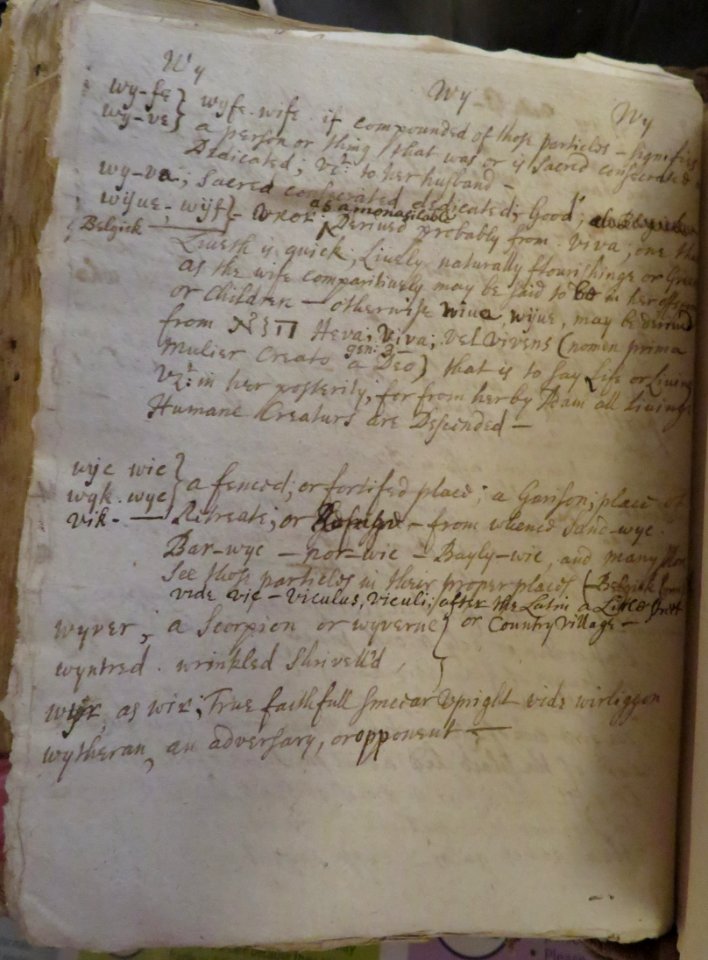 Wy Wy Wy
wy-fe } wyfe. wife. if compounded of those particles - signifies
wy-ve } a person or thing that was or is Sacred consecrated
Dedicated; vzt. to her husband -
wy-va; Sacred consecrated dedicated; Good;
wijue, wijf } - uxor. as a monasilable Derived probably from. viva, one that
Belgick Liveth is quick, Lively naturally flourishinge or
as the wife comparitively may be said to be in her
or Children - otherwise wiua, wijue, may be derived
from Heva; Viva; vel vivens (nomen prima
Mulier Creato gen: 3 a Deo) that is to say Life or Living
vzt: in her posterity; for from her by Adam all Livinge
Humane Creaturs are Descended -
wic }
wyk. wyc } a fenced; or fortifed place; a Garison; place of
vik - Retreate; or - from whence
Bar-wyc - nor-wic - Bayly-wic, and many
See those particles in their proper places (Belgick
vide vic - viculus, viculi; after the Latin a Little Street
wyver, a Scorpion or wyverne } or Country village -
wyntred. wrinkled Shrivell'd,
wyr, as wir; True faithfull sincear upright vide wirliggon
wytheran, an adversary, or opponent -